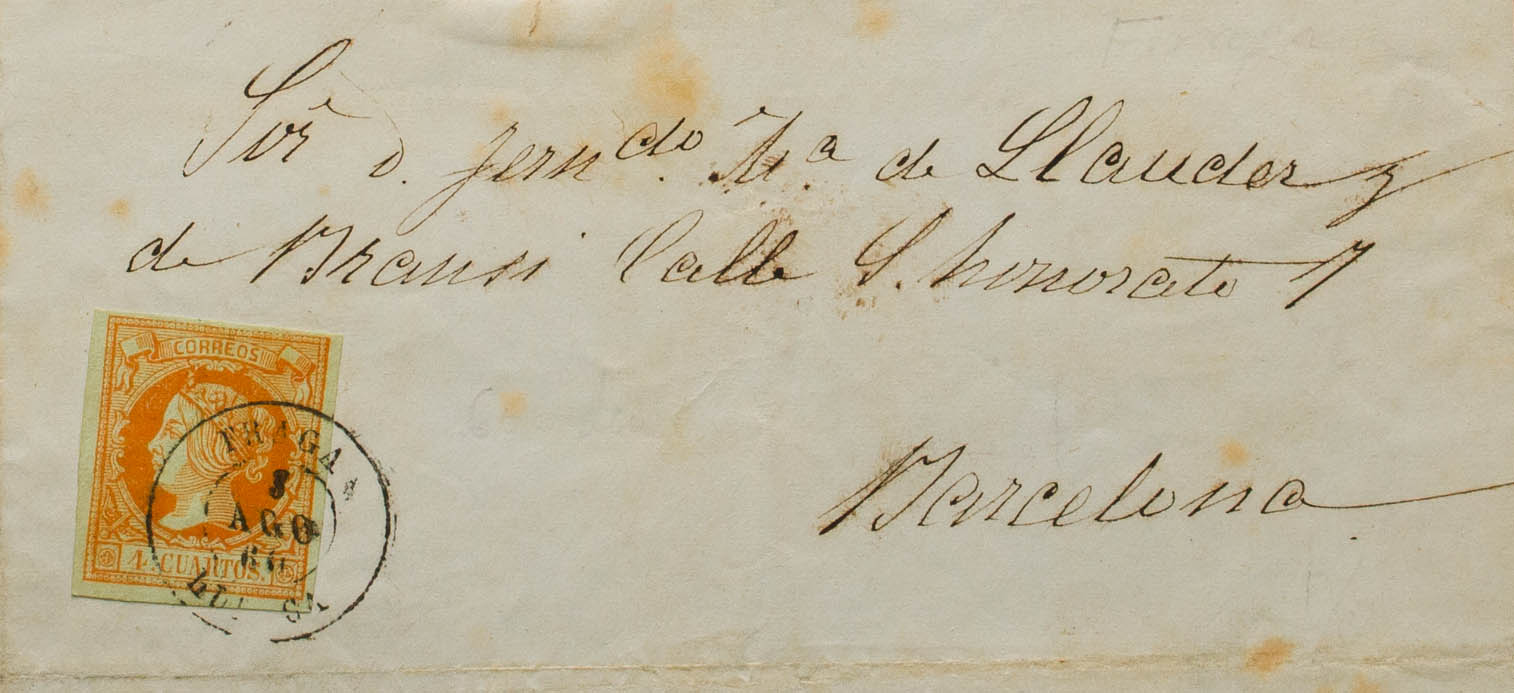 Sor D. Ferndo. Ma. de Llauder y
de Brausi Calle S. honorato 7
Barcelona
CORREOS
4 CUARTOS.
FRAGA
8
AGO
60